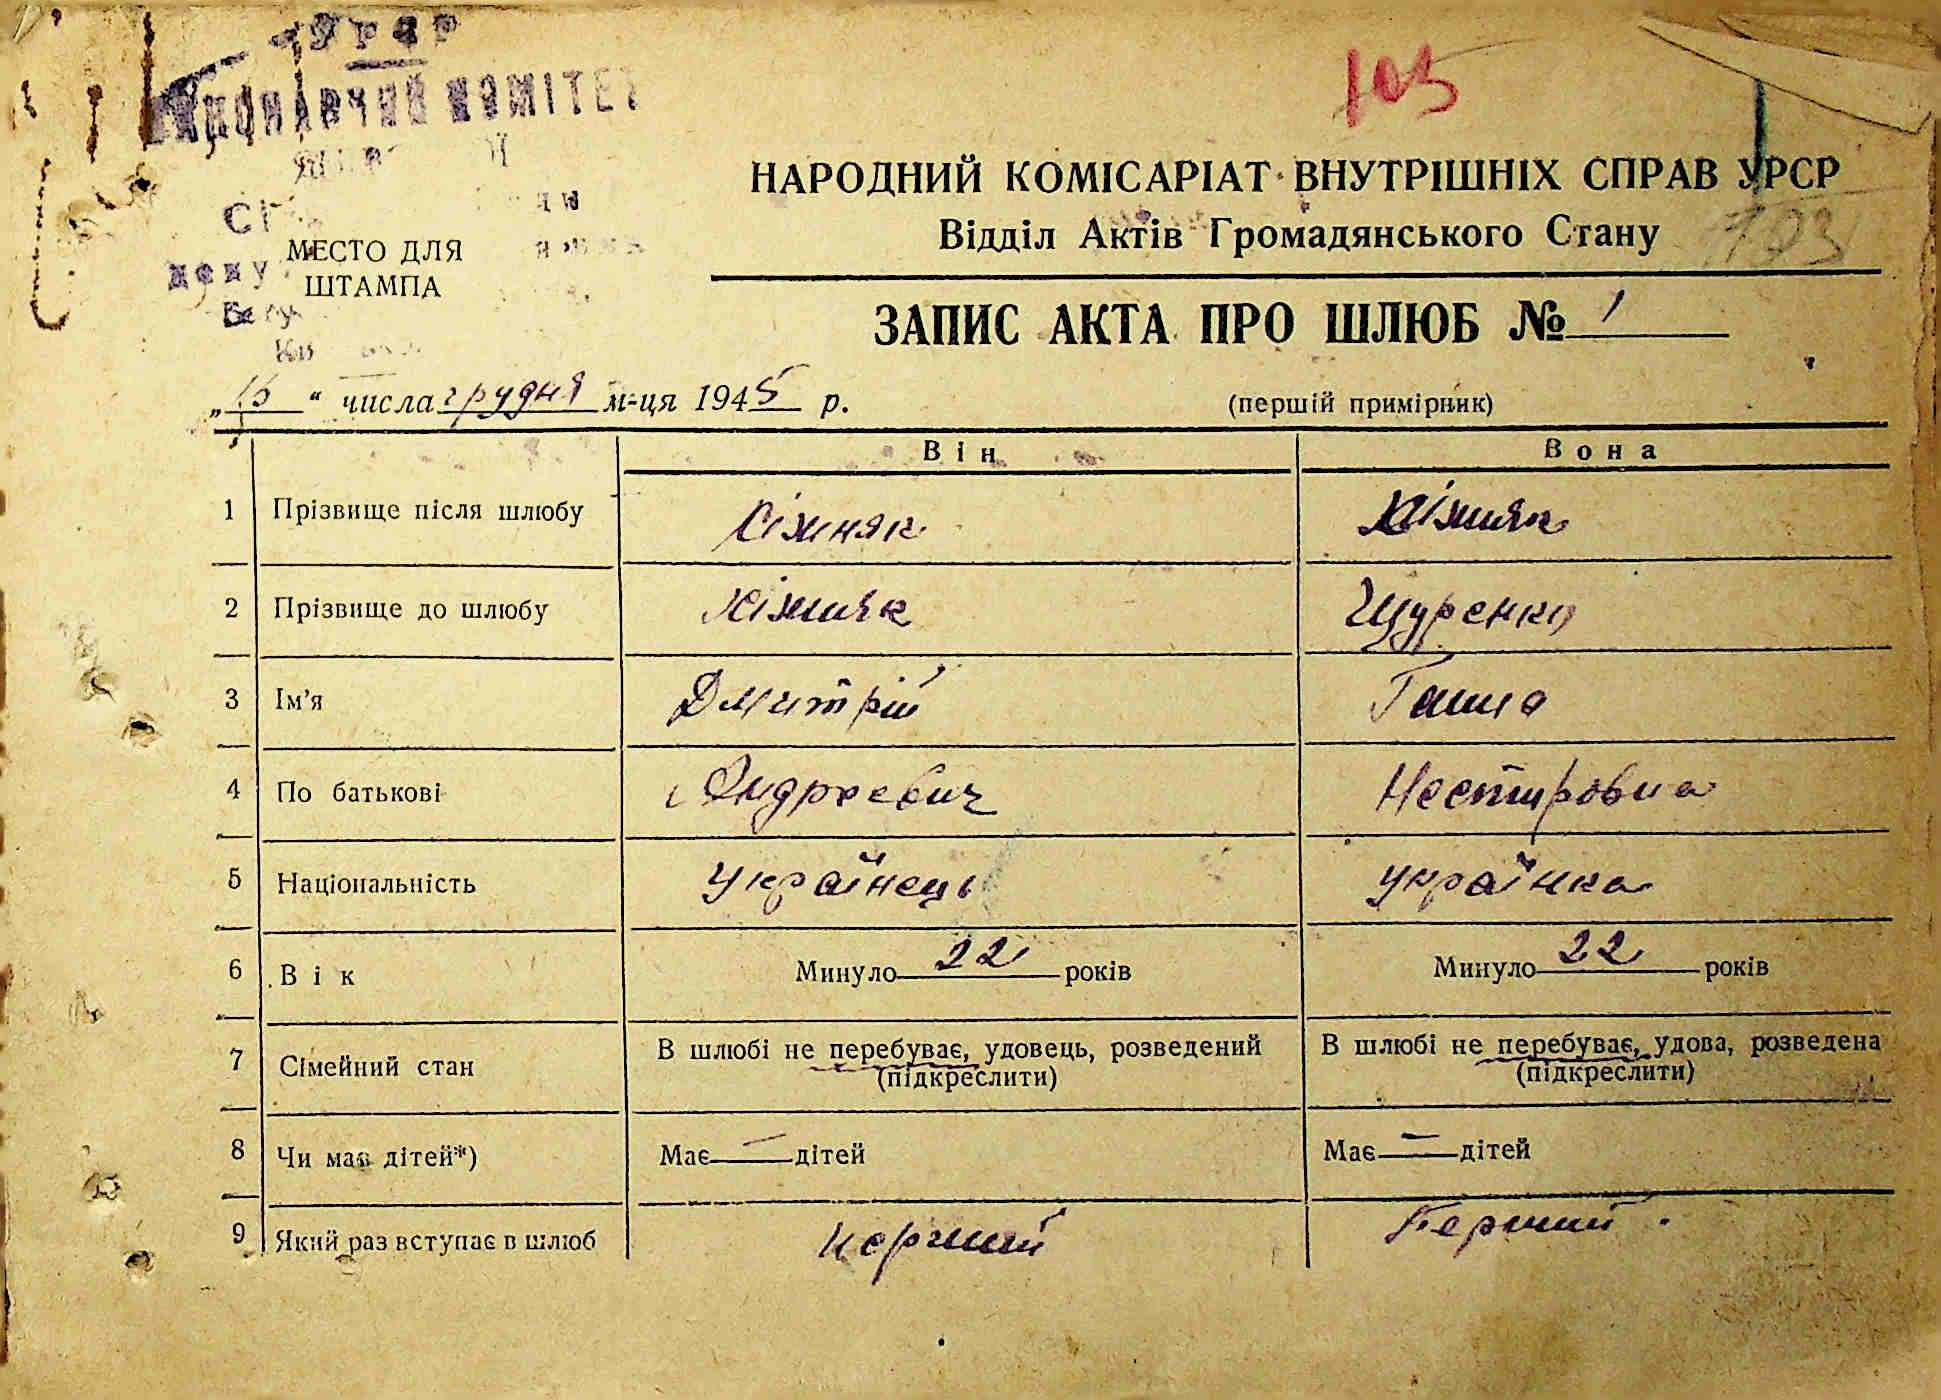 УРСР
ВИКОНАВЧИЙ КОМІТЕТ
105
НАРОДНИЙ КОМІСАРІАТ ВНУТРІШНІХ СПРАВ УРСР
Відділ Актів Громадянського Стану
103
МЕСТО ДЛЯ
ШТАМПА
ЗАПИС АКТА ПРО ШЛЮБ № 1
„15“ числа грудня м-ця 1945 р.
(першій примірник)
Він Вона
1 Прізвище після шлюбу Хіжняк Хіжняк
2 Прізвище до шлюбу Хіжняк Щуренко
3 Ім’я Дмитрій Ганна
4 По батькові Андреевич Нестировна
5 Національність Українець Українка
6 Вік Минуло 22 років Минуло 22 років
7 Сімейний стан В шлюбі не перебуває, удовець, розведений В шлюбі не перебуває, удова, розведена
(підкреслити) (підкреслити)
8 Чи має дітей*) Має — дітей Має — дітей
9 Який раз вступає в шлюб перший Перший